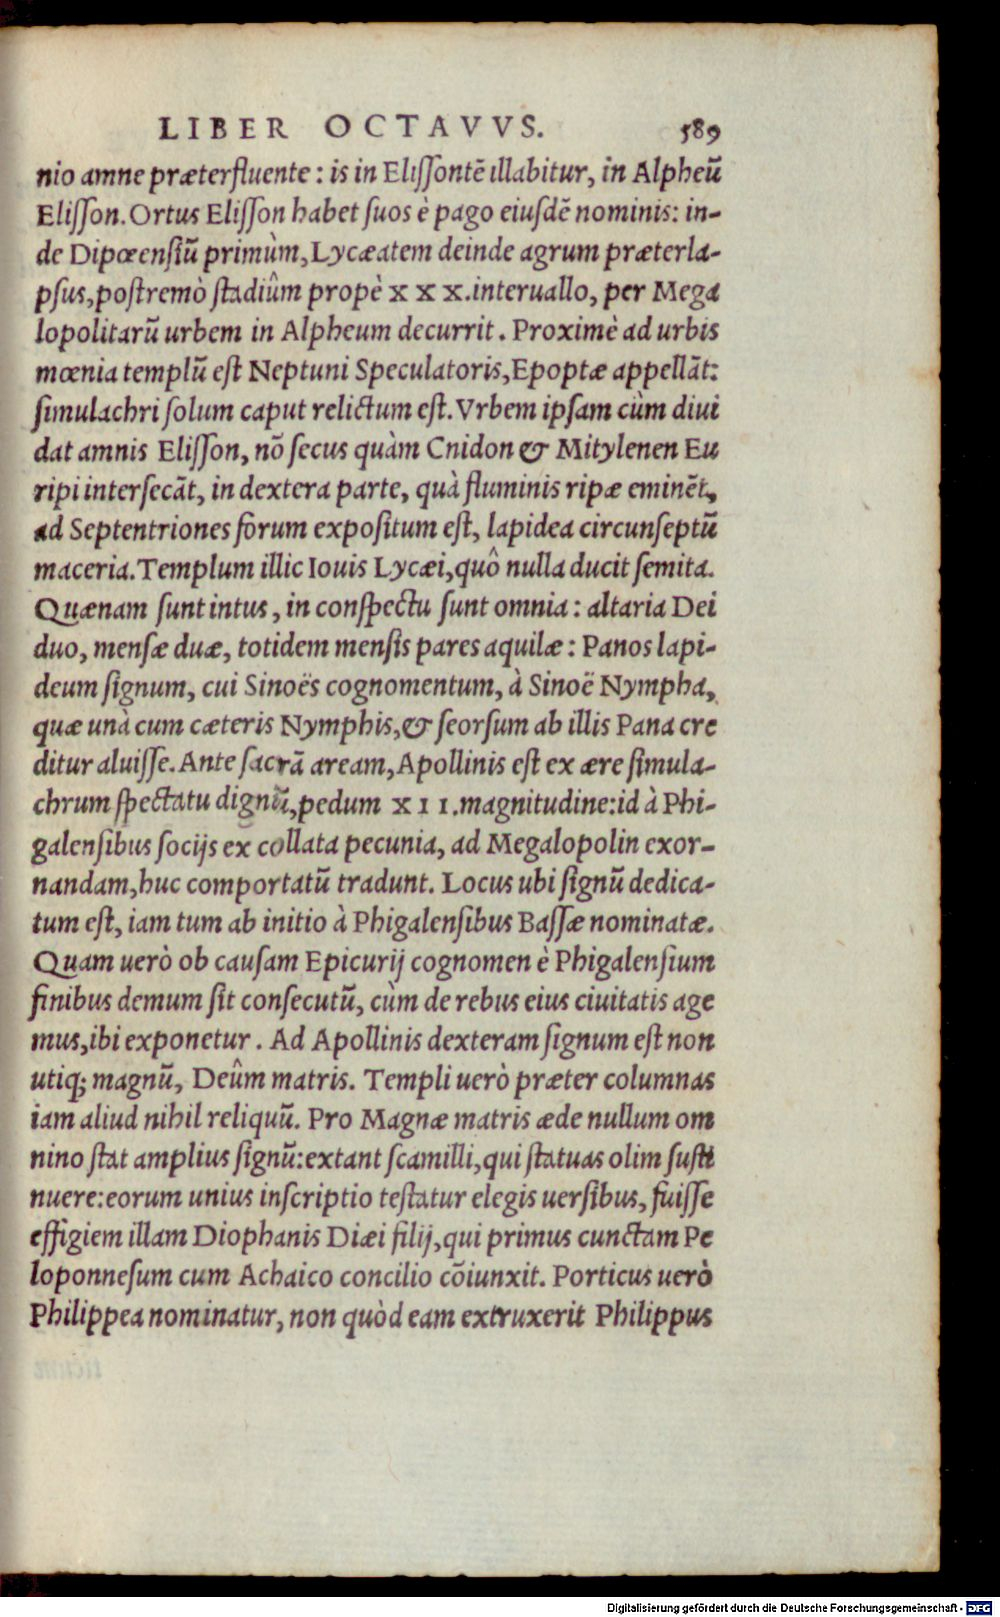 LIBER OCTAVVS. 589
nio amne præterfluente : is in Elissontē illabitur, in Alpheū
Elisson. Ortus Elisson habet suos è pago eiusdē nominis: in-
de Dipœensiū primùm, Lycæatem deinde agrum præterla-
psus, postremò stadiûm propè XXX. interuallo, per Mega
lopolitarū urbem in Alpheum decurrit. Proximè ad urbis
mœnia templū est Neptuni Speculatoris, Epoptæ appellāt:
simulachri solum caput relictum est. Vrbem ipsam cùm diui
dat amnis Elisson, nō secus quàm Cnidon & Mitylenen Eu
ripi intersecāt, in dextera parte, quà fluminis ripæ eminēt,
ad Septentriones forum expositum est, lapidea circunseptū
maceria. Templum illic Iouis Lycæi, quô nulla ducit semita.
Quænam sunt intus, in conspectu sunt omnia: altaria Dei
duo, mensæ duæ, totidem mensis pares aquilæ: Panos lapi-
deum signum, cui Sinoës cognomentum, à Sinoë Nympha,
quæ unà cum cæteris Nymphis, & seorsum ab illis Pana cre
ditur aluisse. Ante sacrā aream, Apollinis est ex ære simula-
chrum spectatu dignū, pedum XII. magnitudine: id à Phi-
galensibus socijs ex collata pecunia, ad Megalopolin exor-
nandam, huc comportatū tradunt. Locus ubi signū dedica-
tum est, iam tum ab initio à Phigalensibus Bassæ nominatæ.
Quam uerò ob causam Epicurij cognomen è Phigalensium
finibus demum sit consecutū, cùm de rebus eius ciuitatis age
mus, ibi exponetur. Ad Apollinis dexteram signum est non
utiq; magnū, Deûm matris. Templi uerò præter columnas
iam aliud nihil reliquū. Pro Magnæ matris æde nullum om
nino stat amplius signū: extant scamilli, qui statuas olim susti
nuere: eorum unius inscriptio testatur elegis uersibus, fuisse
effigiem illam Diophanis Diæi filij, qui primus cunctam Pe
loponnesum cum Achaico concilio cōiunxit. Porticus uerò
Philippea nominatur, non quòd eam extruxerit Philippus
Digitalisierung gefördert durch die Deutsche Forschungsgemeinschaft - DFG